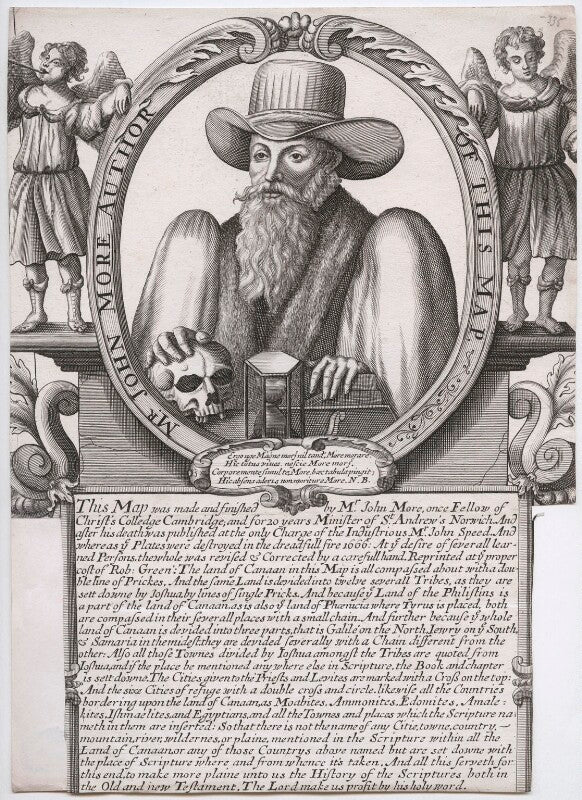 Mr JOHN MORE AUTHOR OF THIS MAP.
Ergo nec Magne mors nil tandẽ More morare
Hic totus viuus, nescie More mori.
Corpore mente simul tu More, hæc tabula pingit;
Hic absens aderis, non moriture More. N. B.
This Map was made and finished by Mr. John More, once Fellow of
Christ's Colledge Cambridge, and for 20 years Minister of St. Andrew's Norwich. And
after his death was published at the only Charge of the Industrious Mr. John Speed. And
whereas ye Plates were destroyed in the dreadfull fire 1666. At ye desire of severall lear-
ned Persons, the whole was revised & Corrected by a carefull hand, Reprinted at ye proper
cost of Rob: Green: The land of Canaan in this Map is all compassed about with a dou-
ble line of Prickes. And the same Land is devided into twelve severall Tribes, as they are
sett downe by Joshua, by lines of single Pricks. And because ye Land of the Philistins is
a part of the land of Canaan, as is also ye land of Phœnicia where Tyrus is placed, both
are compassed in their severall places with a small chain. And further because ye whole
land of Canaan is devided into three parts, that is Galile on the North, Jewry on ye South,
& Samaria in the medest they are devided severally with a Chain different from the
other. Also all those Townes divided by Ioshua amongst the Tribes are quoted from
Joshua, and if the place be mentioned any where else in Scripture, the Book and chapter
is sett downe. The Cities given to the Priests and Levites are marked with a Cross on the top:
And the six Cities of refuge with a double cross and circle. likewise all the Countries
bordering upon the land of Canaan, as Moabites, Ammonites, Edomites, Amale-
kites, Ismaelites, and Egyptians, and all the Townes and places which the Scripture na-
meth in them are inserted: So that there is not the name of any Citie, towne, country
mountain, river, wildernes, or plaine, mentioned in the Scripture within all the
Land of Canaan or any of those Countrys above named but are set downe with
the place of Scripture where and from whence it's taken. And all this serveth for
this end, to make more plaine unto us the History of the Scriptures both in
the Old and new Testament. The Lord make us profit by his holy word.